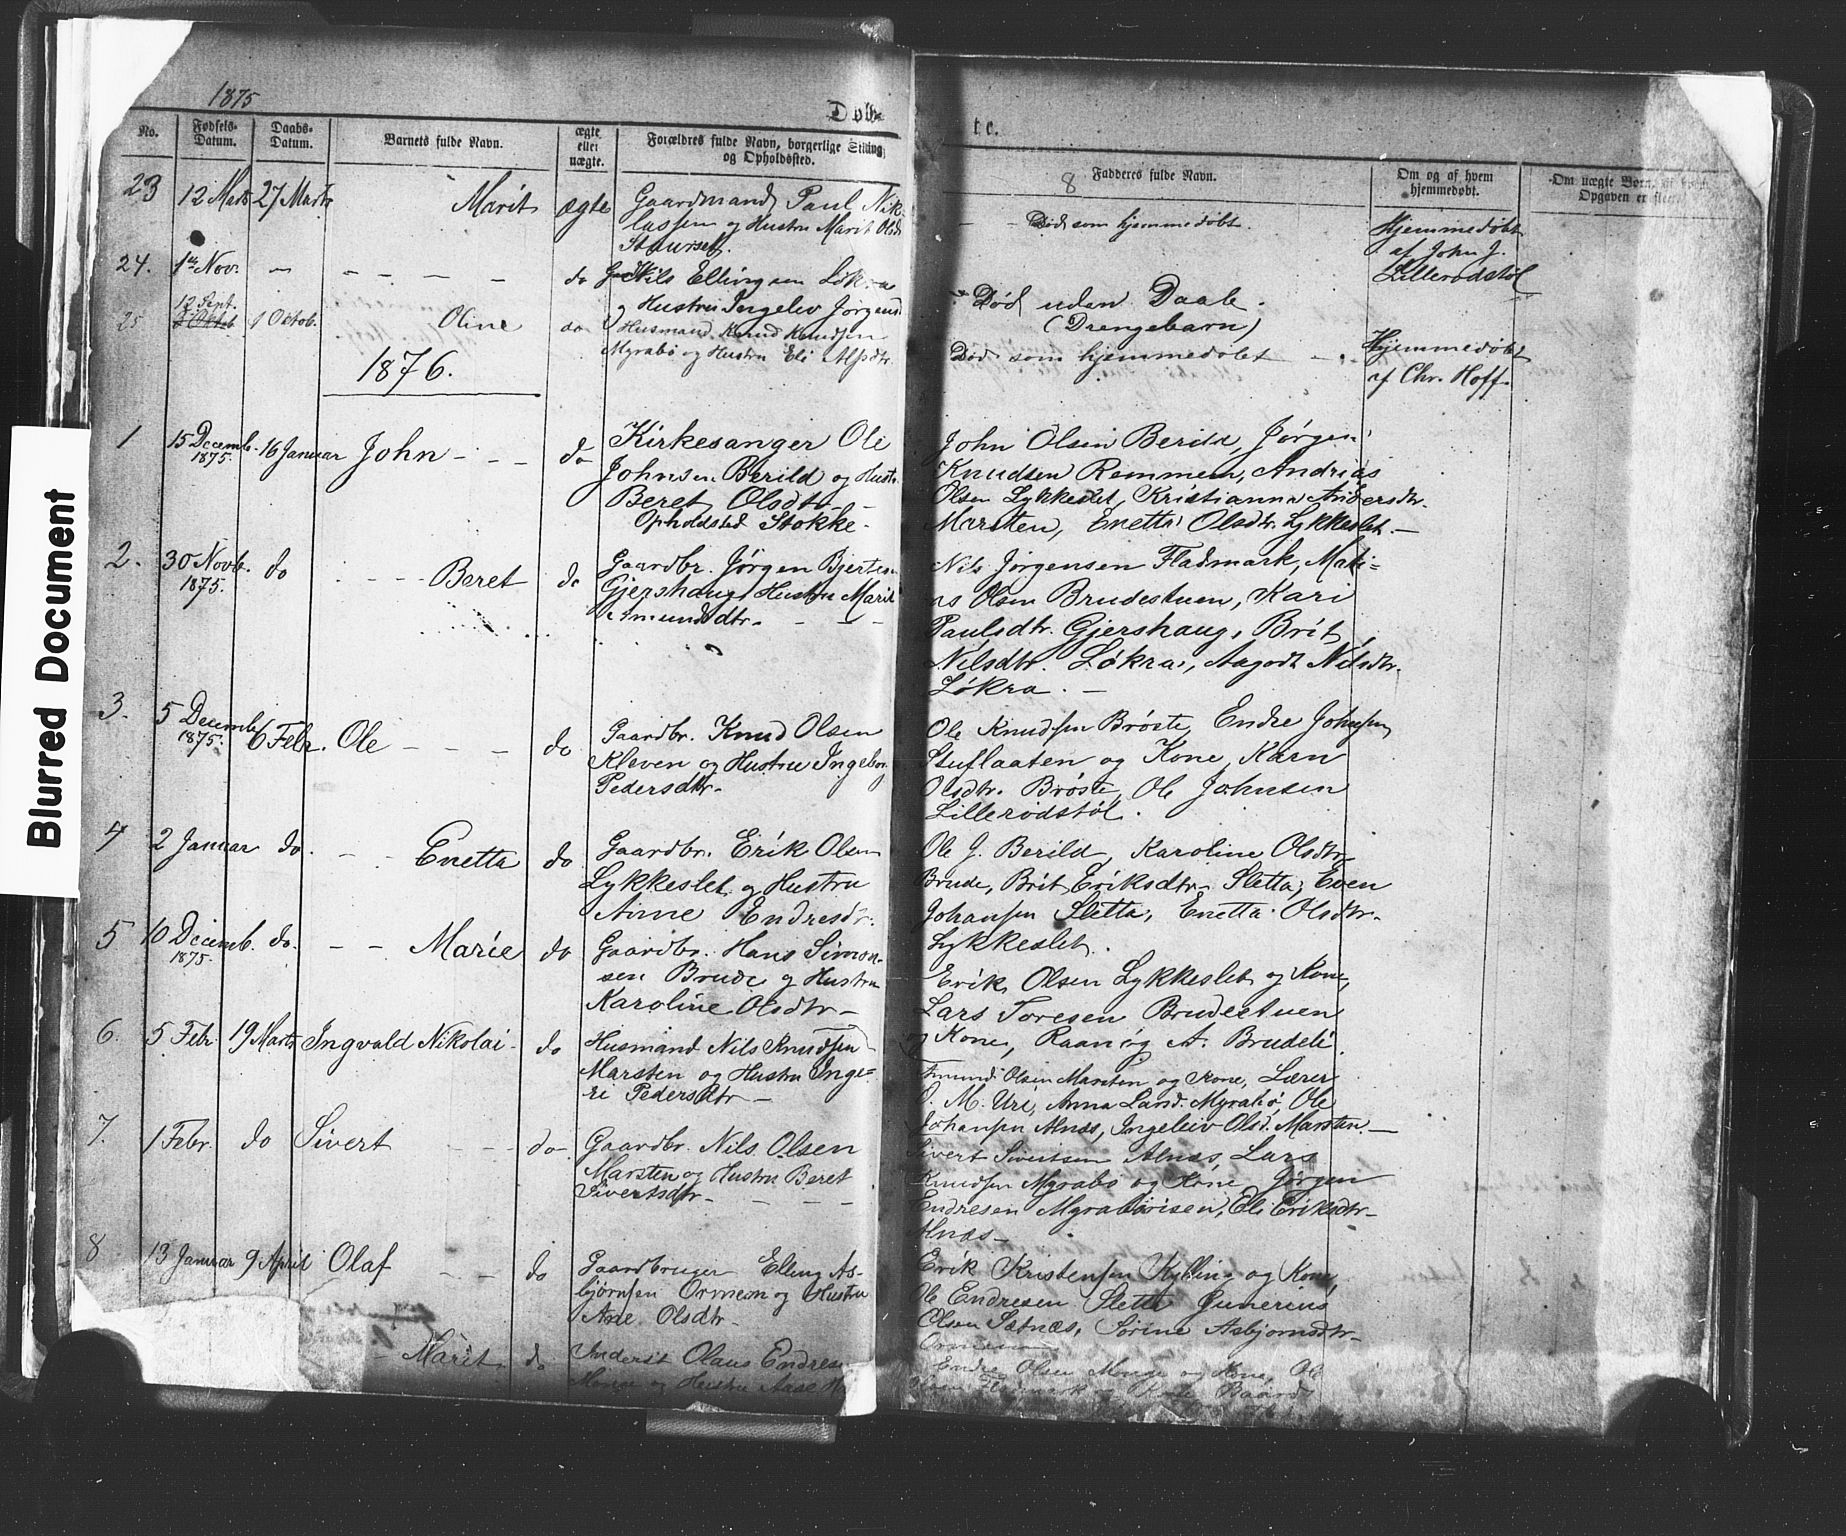 Blurred Document
1875
Døb-
No.
Fødsels-
Datum.
Daabs-
Datum.
Barnets fulde Navn.
ægte
eller
uægte.
Forældres fulde Navn, borgerlige Stilling
og Opholdssted.
23
12 Marts
27 Marts
Marit
ægte
Gaardmand Paul Nik-
lassen og Hustru Marit Olsdr
Staurset.
24.
1ste Nov.
do
Nils Ellingsen Løkra
og Hustru Ingeleiv Jørgensd
25
12 Sept.
1 Oktob.
Oline
do
Husmand Knud Knudsen
Myrabø og Hustru Eli
1876.
1
15 Decemb.
1875.
16 Januar
John
do
Kirkesanger Ole
Johnsen Berild og Hustr
Beret Olsdtr
Opholdsted Stokke
2.
30 Novb.
1875.
do
Beret
do
Gaardbr. Jørgen Bjertsen
Gjershaug Hustru Marit
Amundsdtr.
3.
5 Decemb
1875.
6 Febr.
Ole
do
Gaardbr. Knud Olsen
Kleven og Hustru Ingebor
Pedersdtr.
4
2 Januar
do.
Enetta
do
Gaardbr. Erik Olsen
Lykkeslet og Hustru
Anne Endresdtr.
5
10 Decemb.
1875.
do.
Marie
do
Gaardbr. Hans Simon-
sen Brude og Hustru
Karoline Olsdtr
6.
5 Febr.
19 Marts
Ingvald Nikolai
do
Husmand Nils Knudsen
Marsten og Hustru Inge-
ri Pedersdtr
7.
1 Febr.
do
Sivert
do
Gaardbr. Nils Olsen
Marsten og Hustru Beret
Sivertsdtr
8
13 Januar
9 April
Olaf
do
Gaardbruger Elling As-
bjørnsen Ormem og Hustru
Ane Olsdtr
Marit
do
Inderst Olaus Endres
Monge og Hustru Aase
te.
8
Fadderes fulde Navn.
Om og af hvem
hjemmedøbt.
Om uægte Børn,
Opgaven er
Død som hjemmedøbt.
Hjemmedøbt
af John J.
Lillerødstøl
Død uden Daab.
(Drengebarn)
Død som hjemmedøbt
Hjemmedøbt
af Chr. Hoff.
John Olsen Berild, Jørgen
Knudsen Remmem, Andrias
Olsen Lykkeslet, Kristianna Andersdtr.
Marsten, Enetta Olsdtr. Lykkeslet.
Nils Jørgensen Fladmark, Mati-
as Olsen Brudestuen, Kari
Paulsdtr. Gjershaug, Brit
Nilsdtr. Løkra, Aagodt Nilsdtr.
Løkra.
Ole Knudsen Brøste, Endre Johnsen
Stuflaaten og Kone, Karn
Olsdtr. Brøste, Ole Johnsen
Lillerødstøl.
Ole J. Berild, Karoline Olsdtr
Brude, Brit Eriksdtr. Sletta, Even
Johansen Sletta, Enetta Olsdtr.
Lykkeslet.
Erik Olsen Lykkeslet og Kone,
Lars Toresen Brudestuen
og Kone, Raanøg A. Brudeli
Amund Olsen Marsten og Kone, Lærer
O. M. Uri, Anna Larsd. Myrabø, Ole
Johansen Alnæs, Ingeleiv Olsd. Marsten.
Sivert Sivertsen Alnæs, Lars
Knudsen Myrabø og Kone, Jørgen
Endresen Eli Eriksdtr
Alnæs
Erik Kristensen Kylling og Kone,
Ole Endresen Sletta, Gunerius
Olsen Sætnæs, Sørine Asbjørnsdtr
Ormem
Endre Olsen Monge og Kone, Ole
og Kone Baard